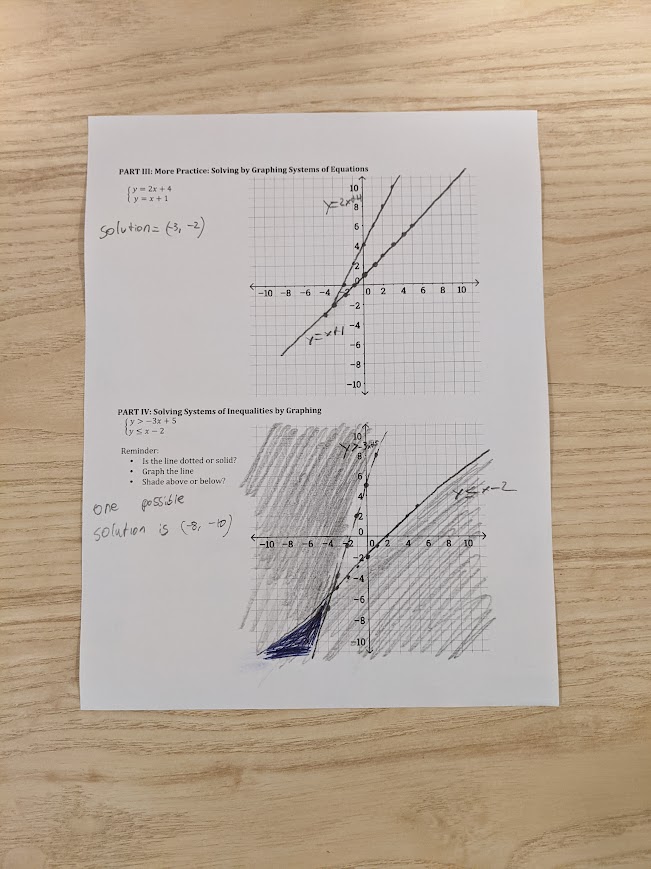 PART III: More Practice: Solving by Graphing Systems of Equations
{y = 2x + 4
y = x + 1
solution = (-3, -2)
y=2x+4
y=x+1
10
8
6
4
2
0
-10 -8 -6 -4 -2 0 2 4 6 8 10
-2
-4
-6
-8
-10
PART IV: Solving Systems of Inequalities by Graphing
{y > -3x + 5
y ≤ x - 2
Reminder:
• Is the line dotted or solid?
• Graph the line
• Shade above or below?
one possible
solution is (-8, -10)
y>-3x+5
y≤x-2
10
8
6
4
2
0
-10 -8 -6 -4 -2 0 2 4 6 8 10
-2
-4
-6
-8
-10